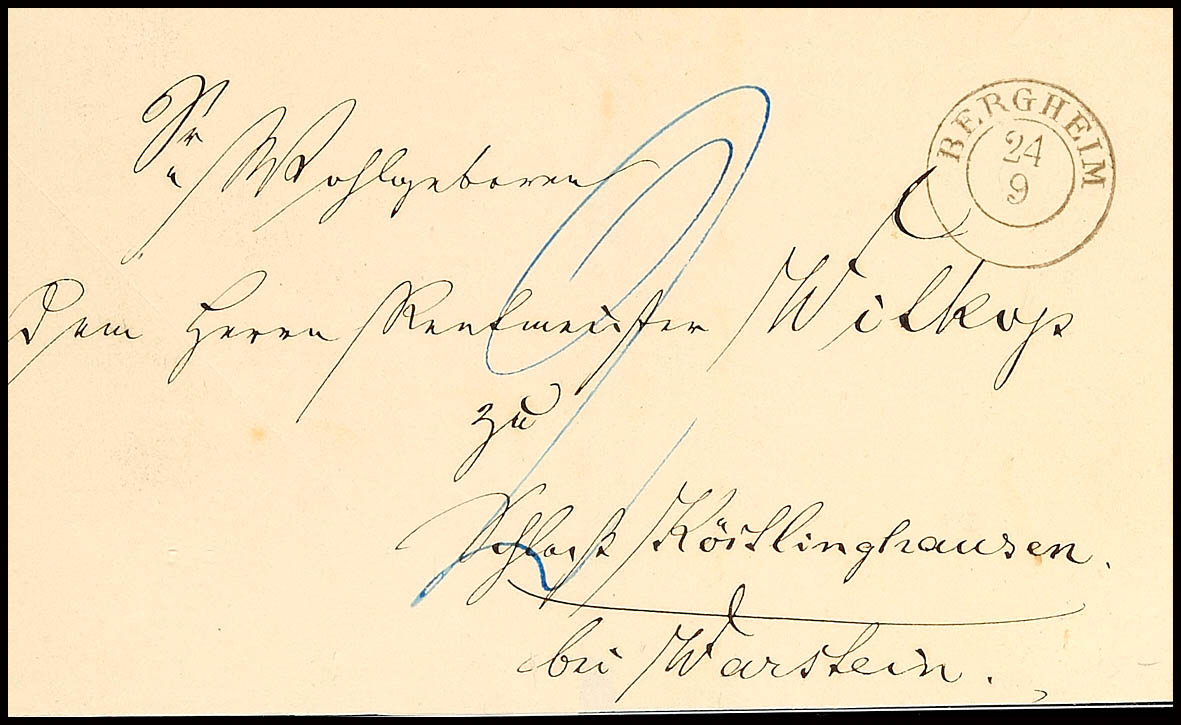 BERGHEIM
24
9
Sr Wohlgeboren
dem Herrn Rentmeister Witkop
zu
Schloß Körtlinghausen.
bei Warstein.